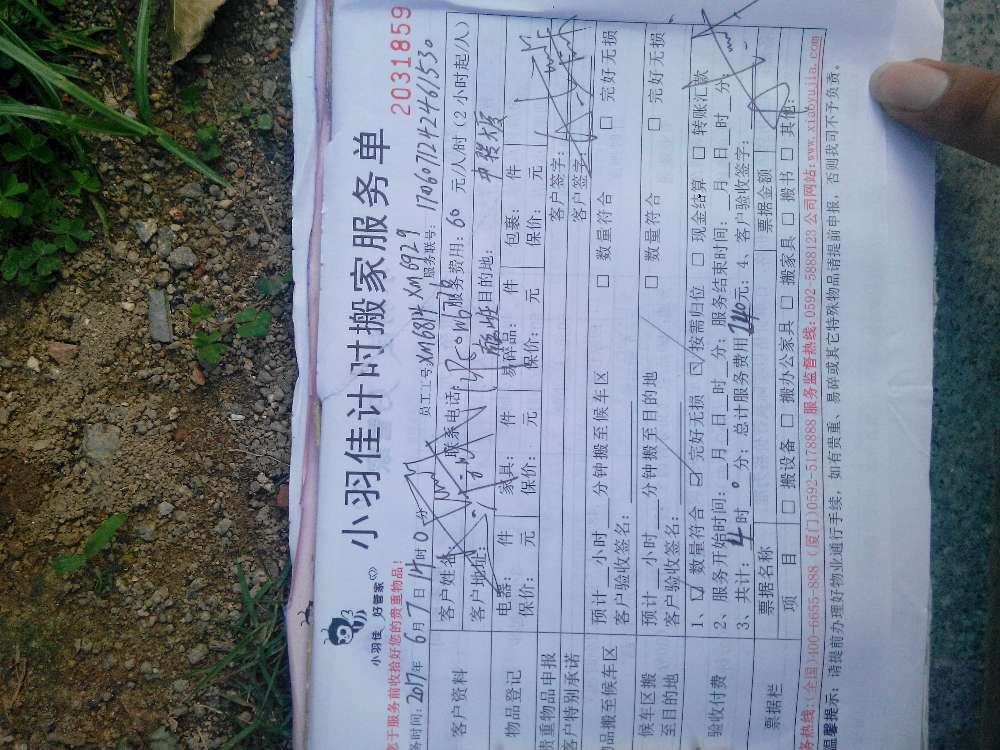 小羽佳 好管家
小羽佳计时搬家服务单
2031859
您于服务前收拾好您的贵重物品!
员工工号: XM6814 XM6929
务时间: 2017年6月7日14时0分
服务联号: 170607124246153o
客户资料
客户姓名: 联系电话: 服务费用: 60 元/人/时(2小时起/人)
客户地址: 目的地:
物品登记
电器: 件 家具: 件 易碎品: 件 包裹: 件
保价: 元 保价: 元 保价: 元 保价: 元
贵重物品申报 客户签字:
客户特别承诺 客户签字:
物品搬至候车区
预计 小时 分钟搬至候车区 □ 数量符合 □ 完好无损
客户验收签名:
候车区搬至目的地
预计 小时 分钟搬至目的地 □ 数量符合 □ 完好无损
客户验收签名:
验收付费
1、☑ 数量符合 ☑ 完好无损 ☑ 按需归位 □ 现金结算 □ 转账汇款
2、服务开始时间: 月 日 时 分; 服务结束时间: 月 日 时 分
3、共计: 4 时 0 分; 总计服务费用 240 元; 4、客户验收签字:
票据栏
票据名称 票据金额
项 目 □ 搬设备 □ 搬办公家具 □ 搬家具 □ 搬书 □ 其他:
务热线:(全国)400-6655-888 (厦门)0592-5178888 服务监督热线:0592-5888123 公司网站:www.xiaoyujia.com
温馨提示: 请提前办理好物业通行手续, 如有贵重、易碎或其它特殊物品请提前申报, 否则我司不予负责。